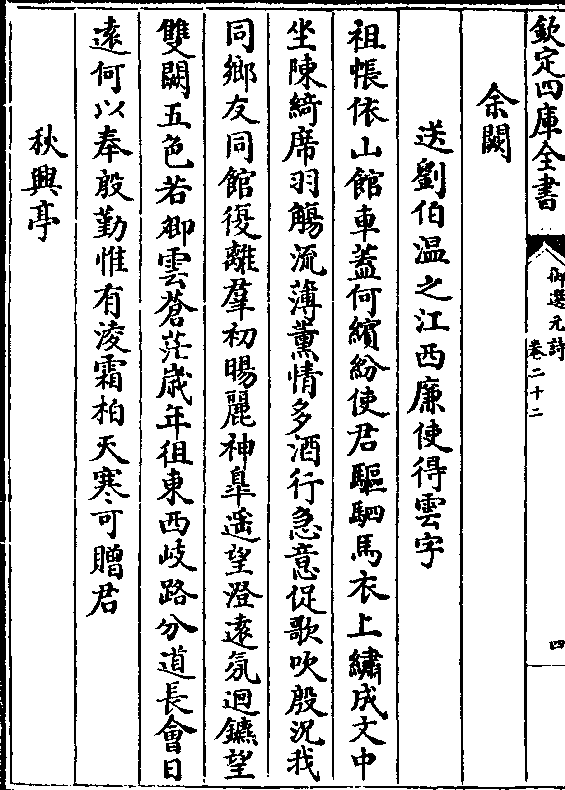 欽定四庫全書
御選元詩
卷二十二
四
余闕
送劉伯温之江西廉使得雲字
祖帳依山館車葢何繽紛使君驅駟馬衣上繡成文中
坐陳綺席羽觴流薄薰情多酒行急意促歌吹殷況我
同鄉友同館復離羣初暘麗神臯遥望澄遠氛迴鑣望
雙闕五色若卿雲蒼茫歳年徂東西岐路分道長會日
逺何以奉殷勤惟有凌霜柏天寒可贈君
秋興亭